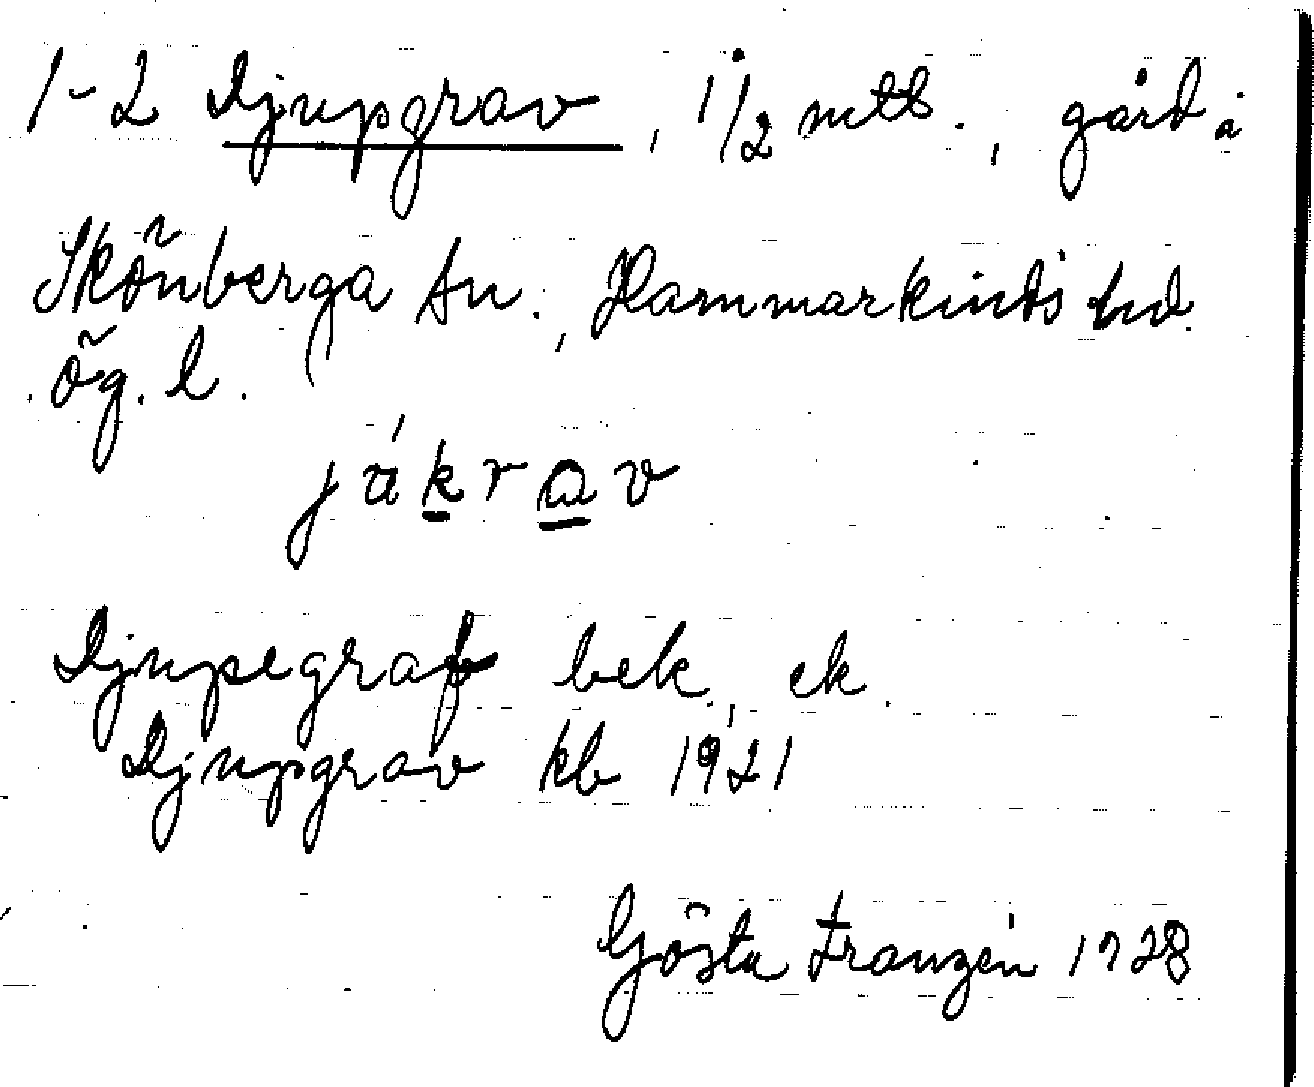 1-2 Djupgrav, 1/2 mtl., gård i
Skönberga sn., Hammarkinds hd.
Ög. l.
júkrav
Djupegraf bek., ek.
Djupgrav kb 1921
Gösta Franzén 1928